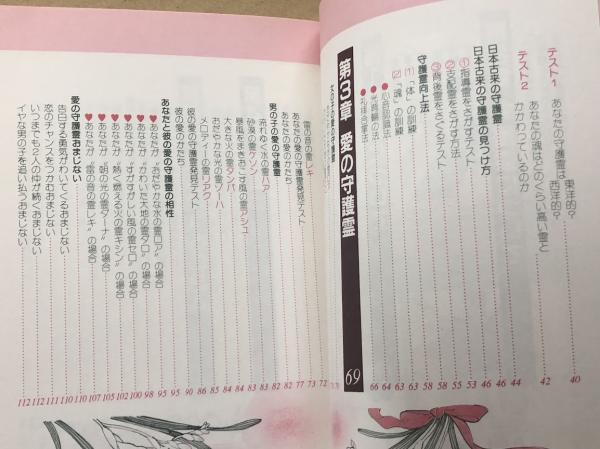 テスト1 あなたの守護霊は
東洋的？
西洋的？ 40
テスト2 あなたの魂はどのくらい高い霊と
かかわっているのか 42
日本古来の守護霊 44
日本古来の守護霊の見つけ方 46
①指導霊をさがすテスト 46
②支配霊をさがす方法 53
③背後霊をさぐるテスト 55
守護霊向上法 58
(1)「体」の訓練 58
(2)「魂」の訓練 63
●小音認識法 63
●光背輪の法 64
●礼拝合掌法 66
第3章 愛の守護霊 69
女の子の愛の守護霊
あなたの愛の守護霊発見テスト 72
あなたの愛のかたち 73
雷の音の霊レキ 77
男の子の愛の守護霊 82
流れゆく水の霊バア 82
砂漠の霊ケソン 83
暴風をまきおこす風の霊アシュ 83
大きな火の霊タンバ 84
おだやかな光の霊ゾーハ 84
メロディーの霊リアク 85
彼の愛の守護霊発見テスト 86
彼の愛のかたち 90
あなたと彼の愛の守護霊の相性 95
♥あなたが“おだやかな水の霊ロア”の場合 95
♥あなたが“かわいた大地の霊タロ”の場合 98
♥あなたが“すがすがしい風の霊セロ”の場合 100
♥あなたが“熱く燃える火の霊キシン”の場合 102
♥あなたが“朝の光の霊ターナ”の場合 105
♥あなたが“雷の音の霊レキ”の場合 107
愛の守護霊おまじない 110
告白する勇気がわいてくるおまじない 110
恋のチャンスをつかむおまじない 111
いつまでも2人の仲が続くおまじない 112
イヤな男の子を追い払うおまじない 112